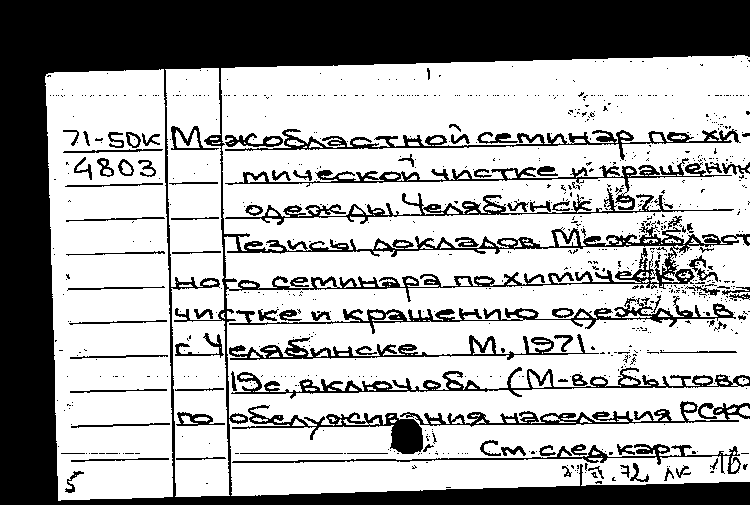 71-50К Межобластной семинар по хи-
4803 мической чистке и крашению
одежды. Челябинск. 1971.
Тезисы докладов Межобласт
ного семинара по химической
чистке и крашению одежды. в
г. Челябинске. М., 1971.
19с., включ. обл. (М-во бытово
го обслуживания населения РСФС
См. след. карт.
5